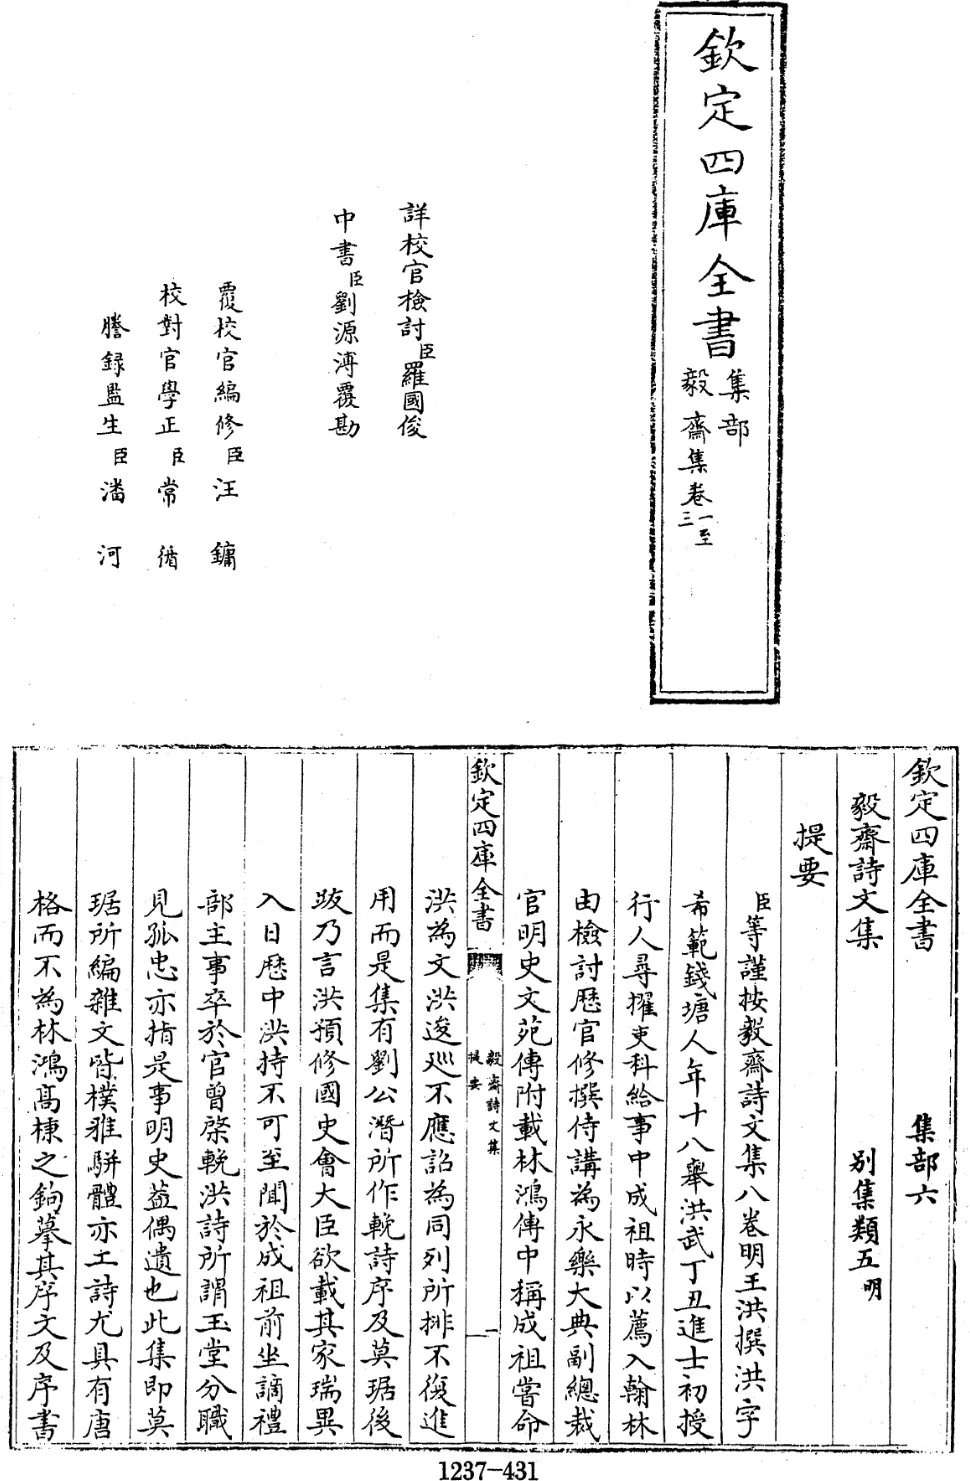 欽定四庫全書
集部
毅齋集卷一至三
詳校官檢討臣羅國俊
中書臣劉源溥覆勘
覆校官編修臣汪鏞
校對官學正臣常循
謄錄監生臣潘河
欽定四庫全書 集部六
毅齋詩文集 別集類五明
提要
臣等謹按毅齋詩文集八卷明王洪撰洪字
希範錢塘人年十八舉洪武丁丑進士初授
行人尋擢吏科給事中成祖時以薦入翰林
由檢討歷官修撰侍講為永樂大典副總裁
官明史文苑傳附載林鴻傳中稱成祖嘗命
欽定四庫全書
毅齋詩文集
提要
一
洪為文洪逡巡不應詔為同列所排不復進
用而是集有劉公潛所作輓詩序及莫琚後
跋乃言洪預修國史會大臣欲載其家瑞異
入日歷中洪持不可至聞於成祖前坐謫禮
部主事卒於官曾棨輓洪詩所謂玉堂分職
見孤忠亦指是事明史蓋偶遺也此集即莫
琚所編雜文皆樸雅駢體亦工詩尤具有唐
格而不為林鴻高棅之鉤摹其序文及序書
1237-431